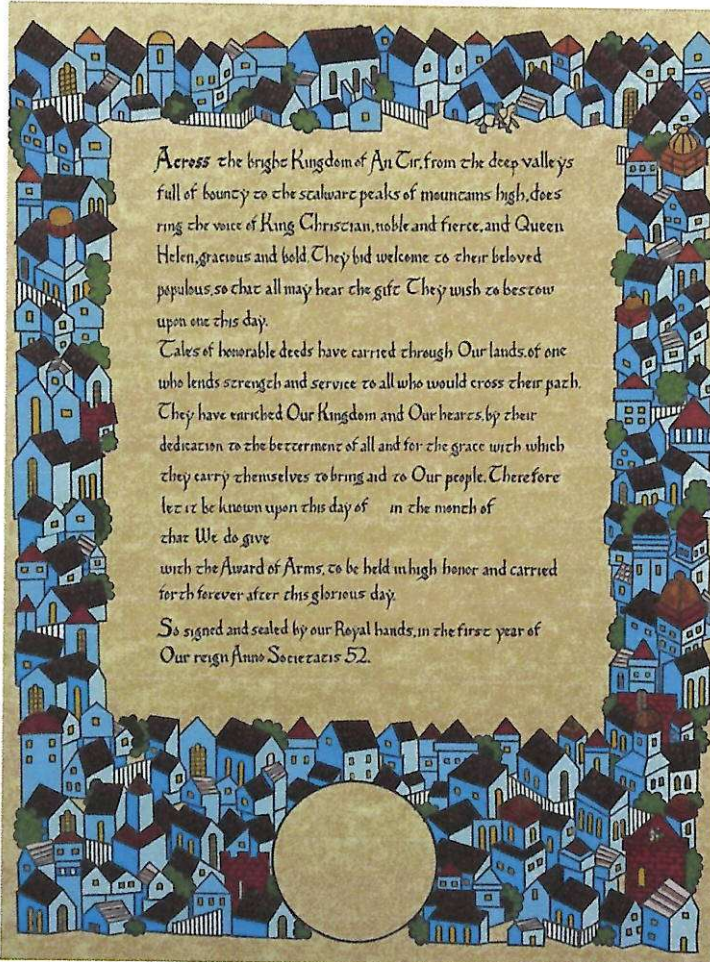 Across the bright Kingdom of An Tir, from the deep valleys
full of bounty to the stalwart peaks of mountains high, does
ring the voice of King Christian, noble and fierce, and Queen
Helen, gracious and bold. They bid welcome to their beloved
populous, so that all may hear the gift They wish to bestow
upon one this day.
Tales of honorable deeds have carried through Our lands, of one
who lends strength and service to all who would cross their path.
They have enriched Our Kingdom and Our hearts, by their
dedication to the betterment of all and for the grace with which
they carry themselves to bring aid to Our people. Therefore
let it be known upon this day of in the month of
that We do give
with the Award of Arms, to be held in high honor and carried
forth forever after this glorious day.
So signed and sealed by our Royal hands, in the first year of
Our reign Anno Societatis 52.